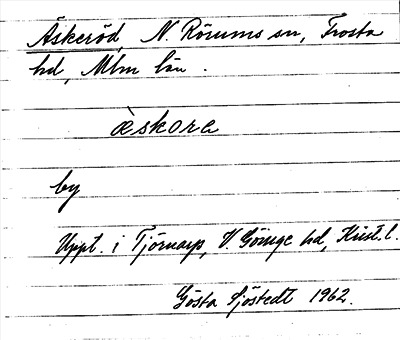 Äskeröd, N. Rörums sn, Frosta
hd, Mlm län.
àskora
by
Uppt. i Tjörnarp, V. Göinge hd, Krist. l.
Gösta Sjöstedt 1962.